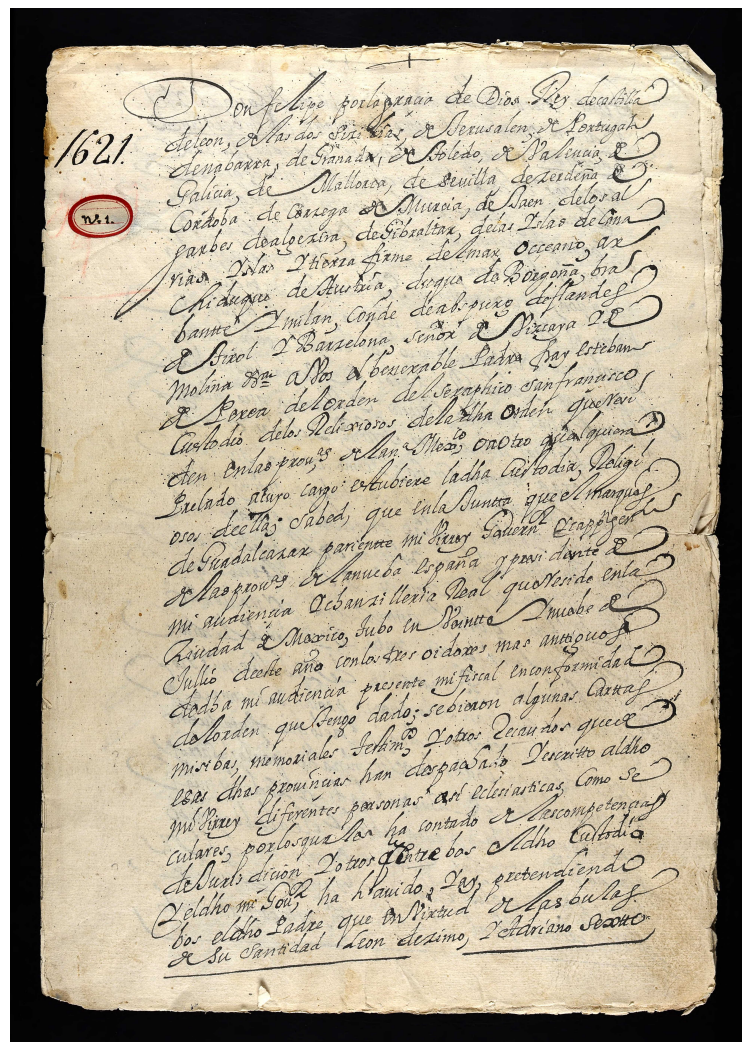 1621.
nº 1.
Don felipe por la gracia de Dios Rey de castilla
de leon, de las dos Sizilias, de Jerusalen, de Portugal
de nabarra, de Granada, de Toledo, de Valencia, de
Galicia, de Mallorca, de Sevilla de zerdeña de
Cordoba de Corzega de Murcia, de Jaen de los al
garbes de algezira, de Gibraltar, de las Yslas de Cana
rias Yslas Y tierra firme del mar Occeano, ar
chiduque de Austria, duque de Borgoña, bra
bantte Y milan, Conde de abspurg de flandes
de Tirol Y Barzelona, señor de Vizcaya Y de
Molina &ª a Vos el benerable Padre fray Esteban
de Perea de lorden del Seraphico San francisco,
Custodio de los Relixiosos de la dha Orden que Resi
den en las prouªs de la nª Mexco, o a otro qualquiera
Prelado a cuyo cargo estubiere la dha Custodia, Religi
osos de ella; Sabed, que en la Juntta que el marques
de Guadalcazar parientte mi Virrey Gouernor Y cappn Gen
de las prouªs de la nueba españa Y presidente de
mi audiencia Y chanzilleria Real que Reside en la
Ziudad de Mexico, tubo en Veintte Y nuebe de
Jullio de este año con los tres oidores mas antiguos
de dha mi audiencia presente mi fiscal en conformidad
del orden que tengo dado; se bieron algunas Carttas
misibas, memoriales testimos, Y otros Recaudos que de
esas dhas provincias han despachado Y escritto al dho
mi Virrey diferentes personas así eclesiasticas, Como se
culares, por los quales ha contado de las competencias
de Jurisdicion Y otros entre bos el dho Custodio
Y el dho mi Gour, ha hauido, Y ay, pretendiendo
bos el dho Padre que en Virtud de las bulas
de Su Santidad Leon dezimo, Y Adriano Sextto